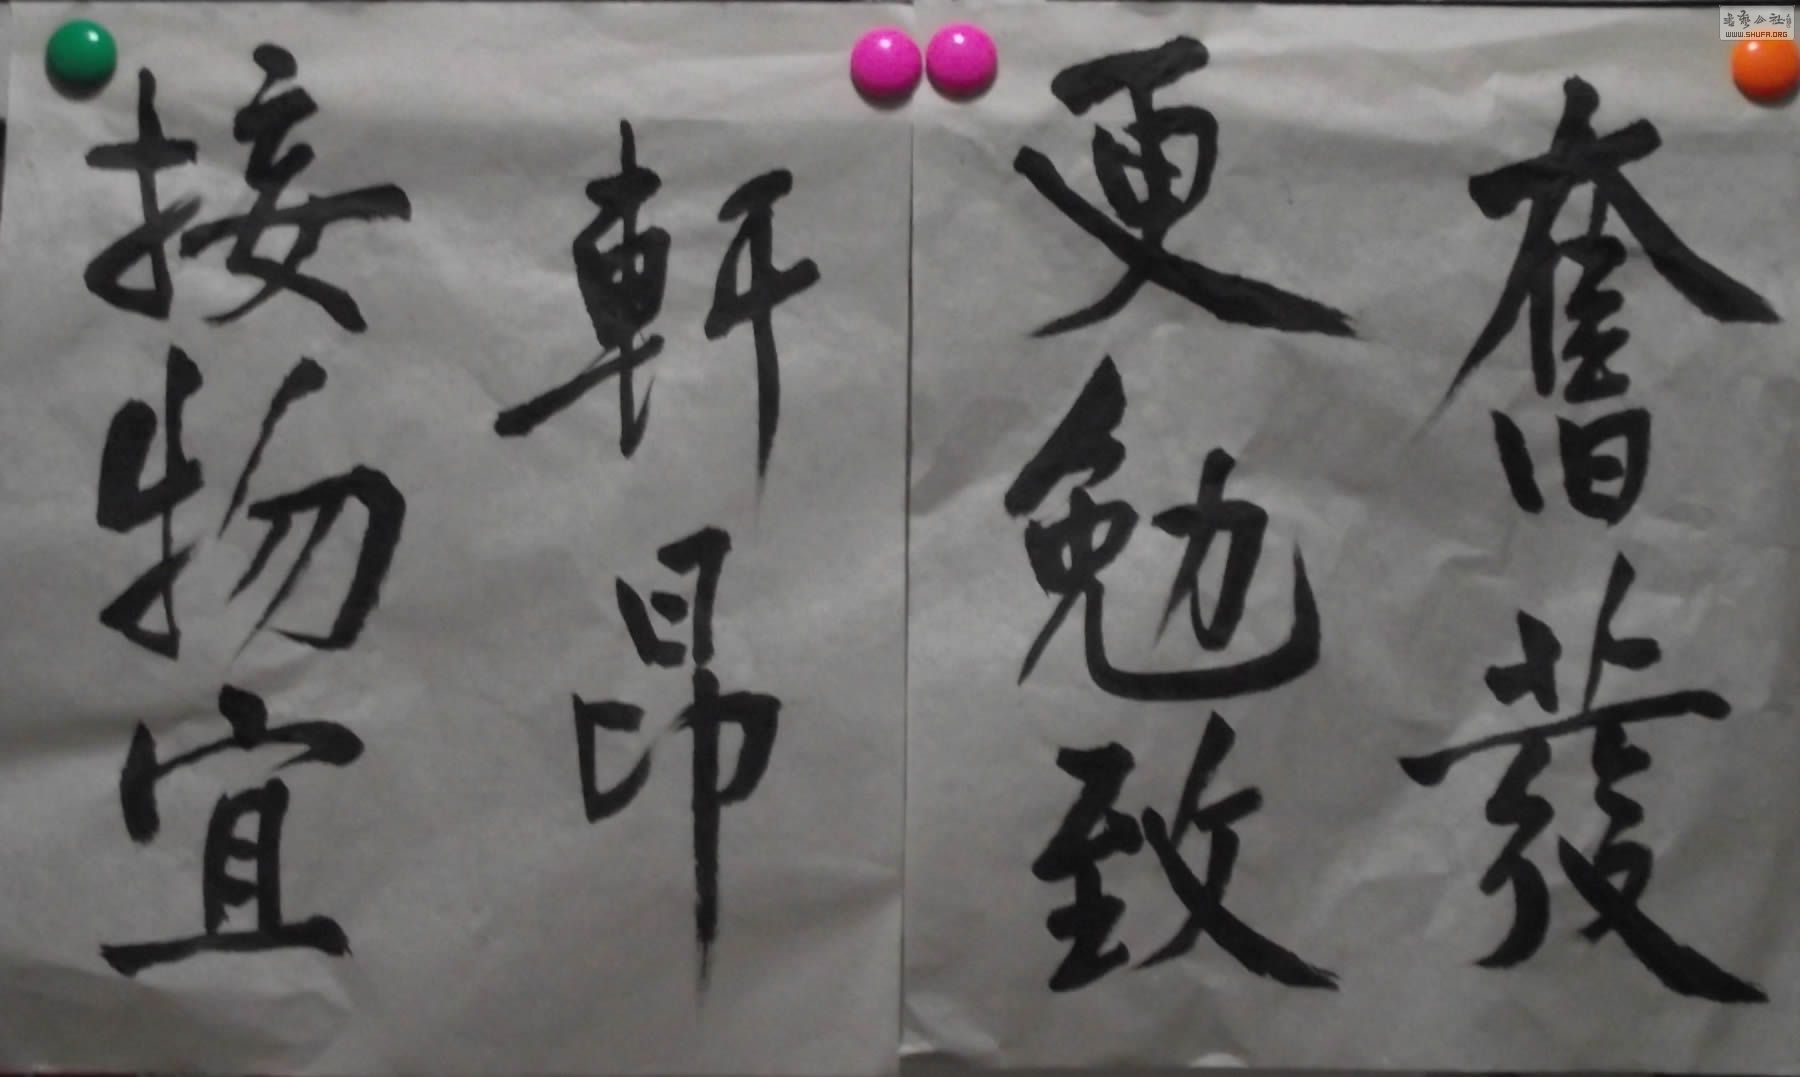 奮發
更勉致
軒昂
接物宜
書藝公社
WWW.SHUFA.ORG